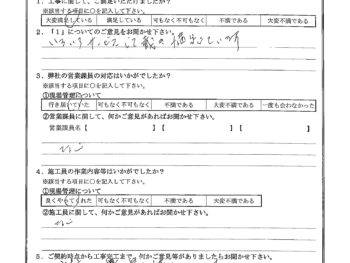 1. 工事に関して、ご満足いただけましたか?
※該当する項目に○を記入して下さい。
大変満足している 満足している 可も無く不可もなく 不満である 大変不満である
2. 「1」についてのご意見をお聞かせ下さい。
3. 弊社の営業課員の対応はいかがでしたか?
※該当する項目に○を記入して下さい。
①現場管理について
行き届いていた 可もなく不可もなく 不満である 大変不満である 一度も会わなかった
②営業課員に関して、何かご意見があればお聞かせ下さい。
営業課員名【 】【 】【 】
4. 施工員の作業内容等はいかがでしたか?
※該当する項目に○を記入して下さい。
①現場管理について
良くやってくれた 可もなく不可もなく 不満である 大変不満である
②施工員に関して、何かご意見があればお聞かせ下さい。
5. ご契約時点から工事完工まで、何かご意見等がありましたらお聞かせ下さい。